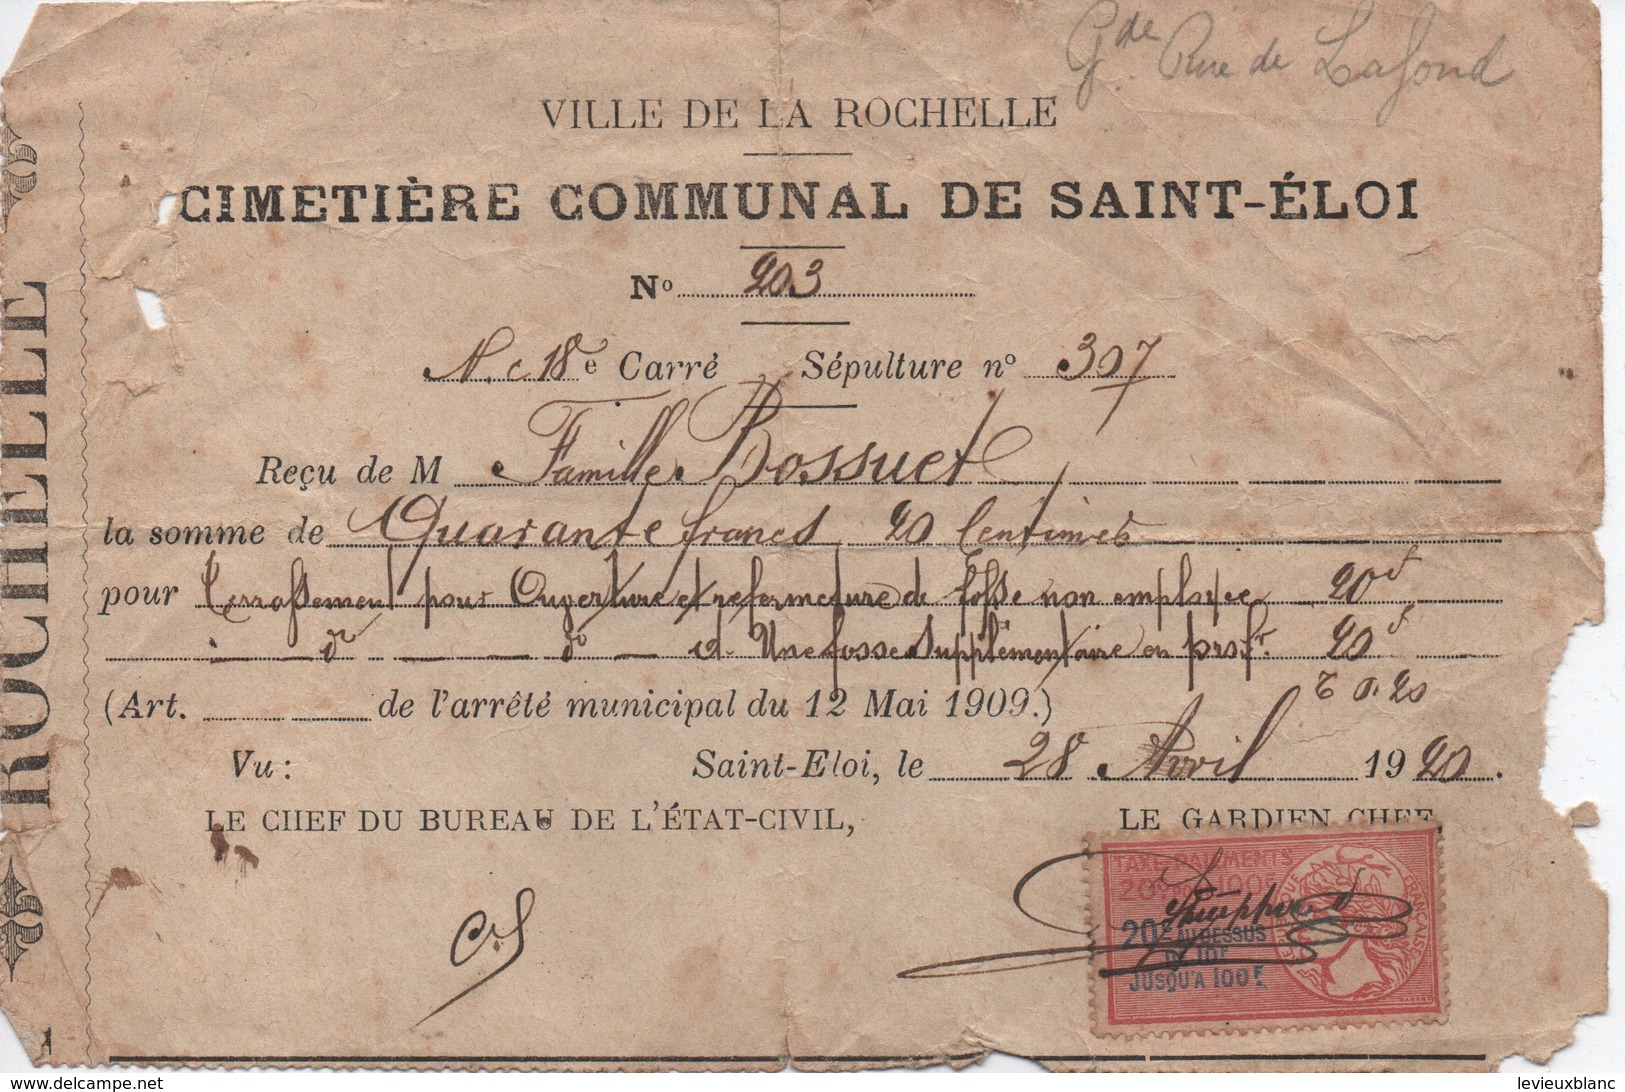 Gde. Rue de Lafond
VILLE DE LA ROCHELLE
CIMETIÈRE COMMUNAL DE SAINT-ÉLOI
No 203
N.c. 18e Carré Sépulture no 307
Reçu de M Famille Bossuet
la somme de Quarante francs 20 Centimes
pour Terrassement pour Ouverture et refermeture de fosse non employée 20f
do do et Une fosse supplémentaire en profr. 20f
(Art. de l'arrêté municipal du 12 Mai 1909.) 0.20
Vu: Saint-Eloi, le 28 Avril 1920.
LE CHEF DU BUREAU DE L'ÉTAT-CIVIL, LE GARDIEN CHEF,
TAXE PAIEMENTS
20c 100F
20c AU DESSUS
DE 10F
JUSQU'A 100F
FRANÇAISE
ROCHELLE
delcampe.net
levieuxblanc